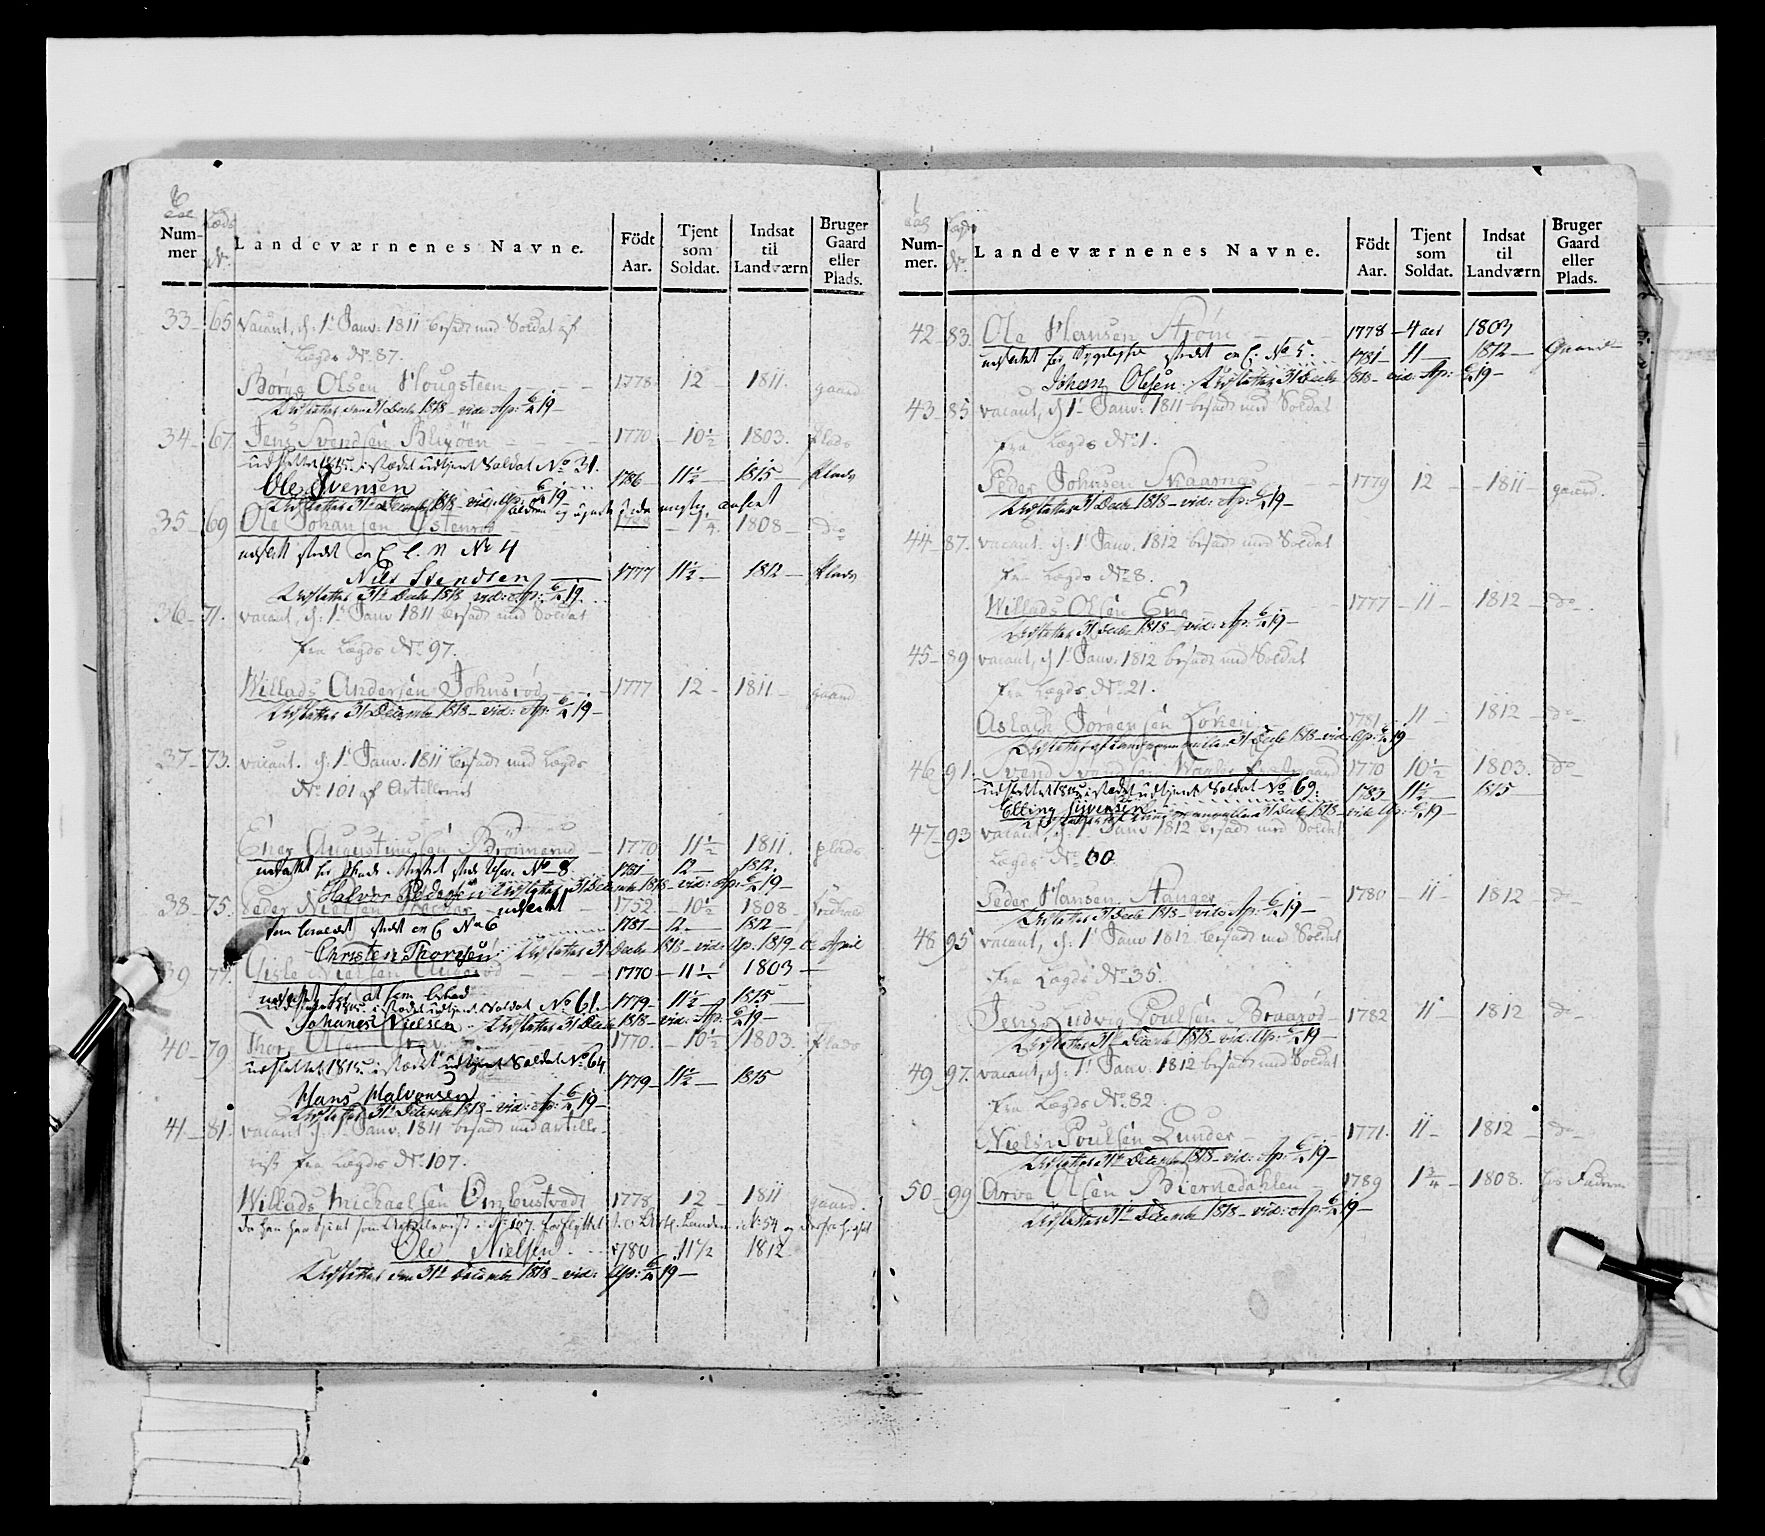 Num-
mer
Lægds
No
Landeværnenes Navne.
Födt
Aar.
Tjent
som
Soldat.
Indsat
til
Landværn
Bruger
Gaard
eller
Plads.
33 65 Vacant, d: 1 Janv: 1811 besadt med Soldat af
Lægds No 87.
Börge Olsen Hougsteen 1778 12 1811. gaard
Udslettes den 31 Decbr 1818 vid: Ap: 6/4 19
34 67. Jens Svendsen 1770 10½ 1803. Plads
udslettet 1815. istædet udtient Soldat No 31.
Ole Svensen 1786 11½ 1815 Plads
Udslettes 31te Decbr 1818 vid: Ap: 19
35 69 Ole Johansen Östenrød 1¼ 1808 do
udslett stedet No 4
Nils Svendsen 1777 11½ 1812 Plads
Udslettes 31te Decbr 1818 vid: Ap: 6/4 19
36 71. vacant, d: 1 Janv 1811 besadt med Soldat
fra Lægds No 97.
Willads Andersen Johnsrød 1777 12 1811 gaard
Udslettes 31 Decembr 1818 vid: Ap: 6/4 19
37 73. vacant. d: 1 Janv: 1811 besadt med Lægds
No 101 af Artilleriet
Ener Augustinusen 1770 11½ 1811. plads
No 8. 1781 12 1812.
Halvor Pedersen Udslettes 31 Decembr 1818 vid: Ap: 6/4 19
38 75. Peder Nielsen udslettet 1752. 10½ 1808
No 6 1781 12 1812
Christen Thoresen Udslettes 31 Decbr 1818 vid: Ap: 1819 April
39 77. Gisle Nielsen 1770 11½ 1803
istædet udtient Soldat No 61. 1779 11½ 1815
Johanes Nielsen Udslettes 31 Decbr 1818 vid: Ap: 6/4 19
40 79 Thor Olsen 1770. 10½ 1803. Plads
udslettet 1815. istædet udtient Soldat No 64
Hans Halvorsen 1779 11½ 1815
Udslettes 31te Decembr 1818 vid: Ap: 6/4 19
41 81. vacant d: 1 Janv: 1811 besadt med artille-
rist fra Lægds No 107.
Willads Michaelsen 1778 12 1811 gaard.
Da han har tient som Artillerist No 107. No 54 og
Ole Nielsen 1780 11½ 1812
Udslettes den 31te Decembr 1818 vid: Ap: 6/4 19
Num-
mer.
Lægds
No
Landeværnenes Navne.
Födt
Aar.
Tjent
som
Soldat.
Indsat
til
Landværn
Bruger
Gaard
eller
Plads.
42 83. Ole Hansen Strøm 1778 4 aar 1803
udslettet for Sygelighed stedet No 5. 1781 11 1812 Gaard
Johan Olsen. Udslettes 31 Decbr 1818 vid: Ap: 6/4 19
43 85 vacant, d 1 Janv: 1811 besadt med Soldat
fra Lægds No 1.
Peder Johnsen Skaarnæs 1779 12 1811 gaard.
Udslettes 31 Decbr 1818 vid: Ap: 6/4 19
44 87. vacant. d: 1 Janv. 1812 besadt med Soldat
fra Lægds No 8.
Willads Olsen Eng 1777 11 1812 do
Udslettes 31 Decbr 1818 vid: Ap: 6/4 19
45 89 vacant, d 1 Janv: 1812 besadt med Soldat
fra Lægds No 21.
Aslach Jörgensen Löken 1781 11 1812 do
Udslettes 31 Decbr 1818 vid: Ap: 6/4 19
46 91. Svend Svendsen 1770 10½ 1803. do
udslettet 1815 istædet udtient Soldat No 69. 1783 11½ 1815
Elling Syversen 31 Decbr 1818 vide Ap: 6/4 19
47 93 vacant, d: 1 Janv 1812 besadt med Soldat
Lægds No 60.
Peder Hansen Stanger 1780 11 1812 do
Udslettes 31 Decbr 1818 vide Ap: 6/4 19
48 95 vacant, d: 1 Janv 1812 besadt med Soldat
fra Lægds No 35.
Jens Ludvig Poulsen Braarød 1782 11 1812 do
Udslettes 31te Decembr 1818 vid: Ap: 6/4 19
49 97. vacant, d: 1 Janv. 1812 besadt med Soldat
fra Lægds No 82.
Niels Poulsen Lunder 1771. 11 1812 do
Udslettes 31te Decembr 1818 vid: Ap: 6/4 19
50 99 Arve Olsen Bierkedahlen 1789 1¾ 1808. hos Faderen
Udslettes 31te Decembr 1818 vid: Ap: 6/4 19